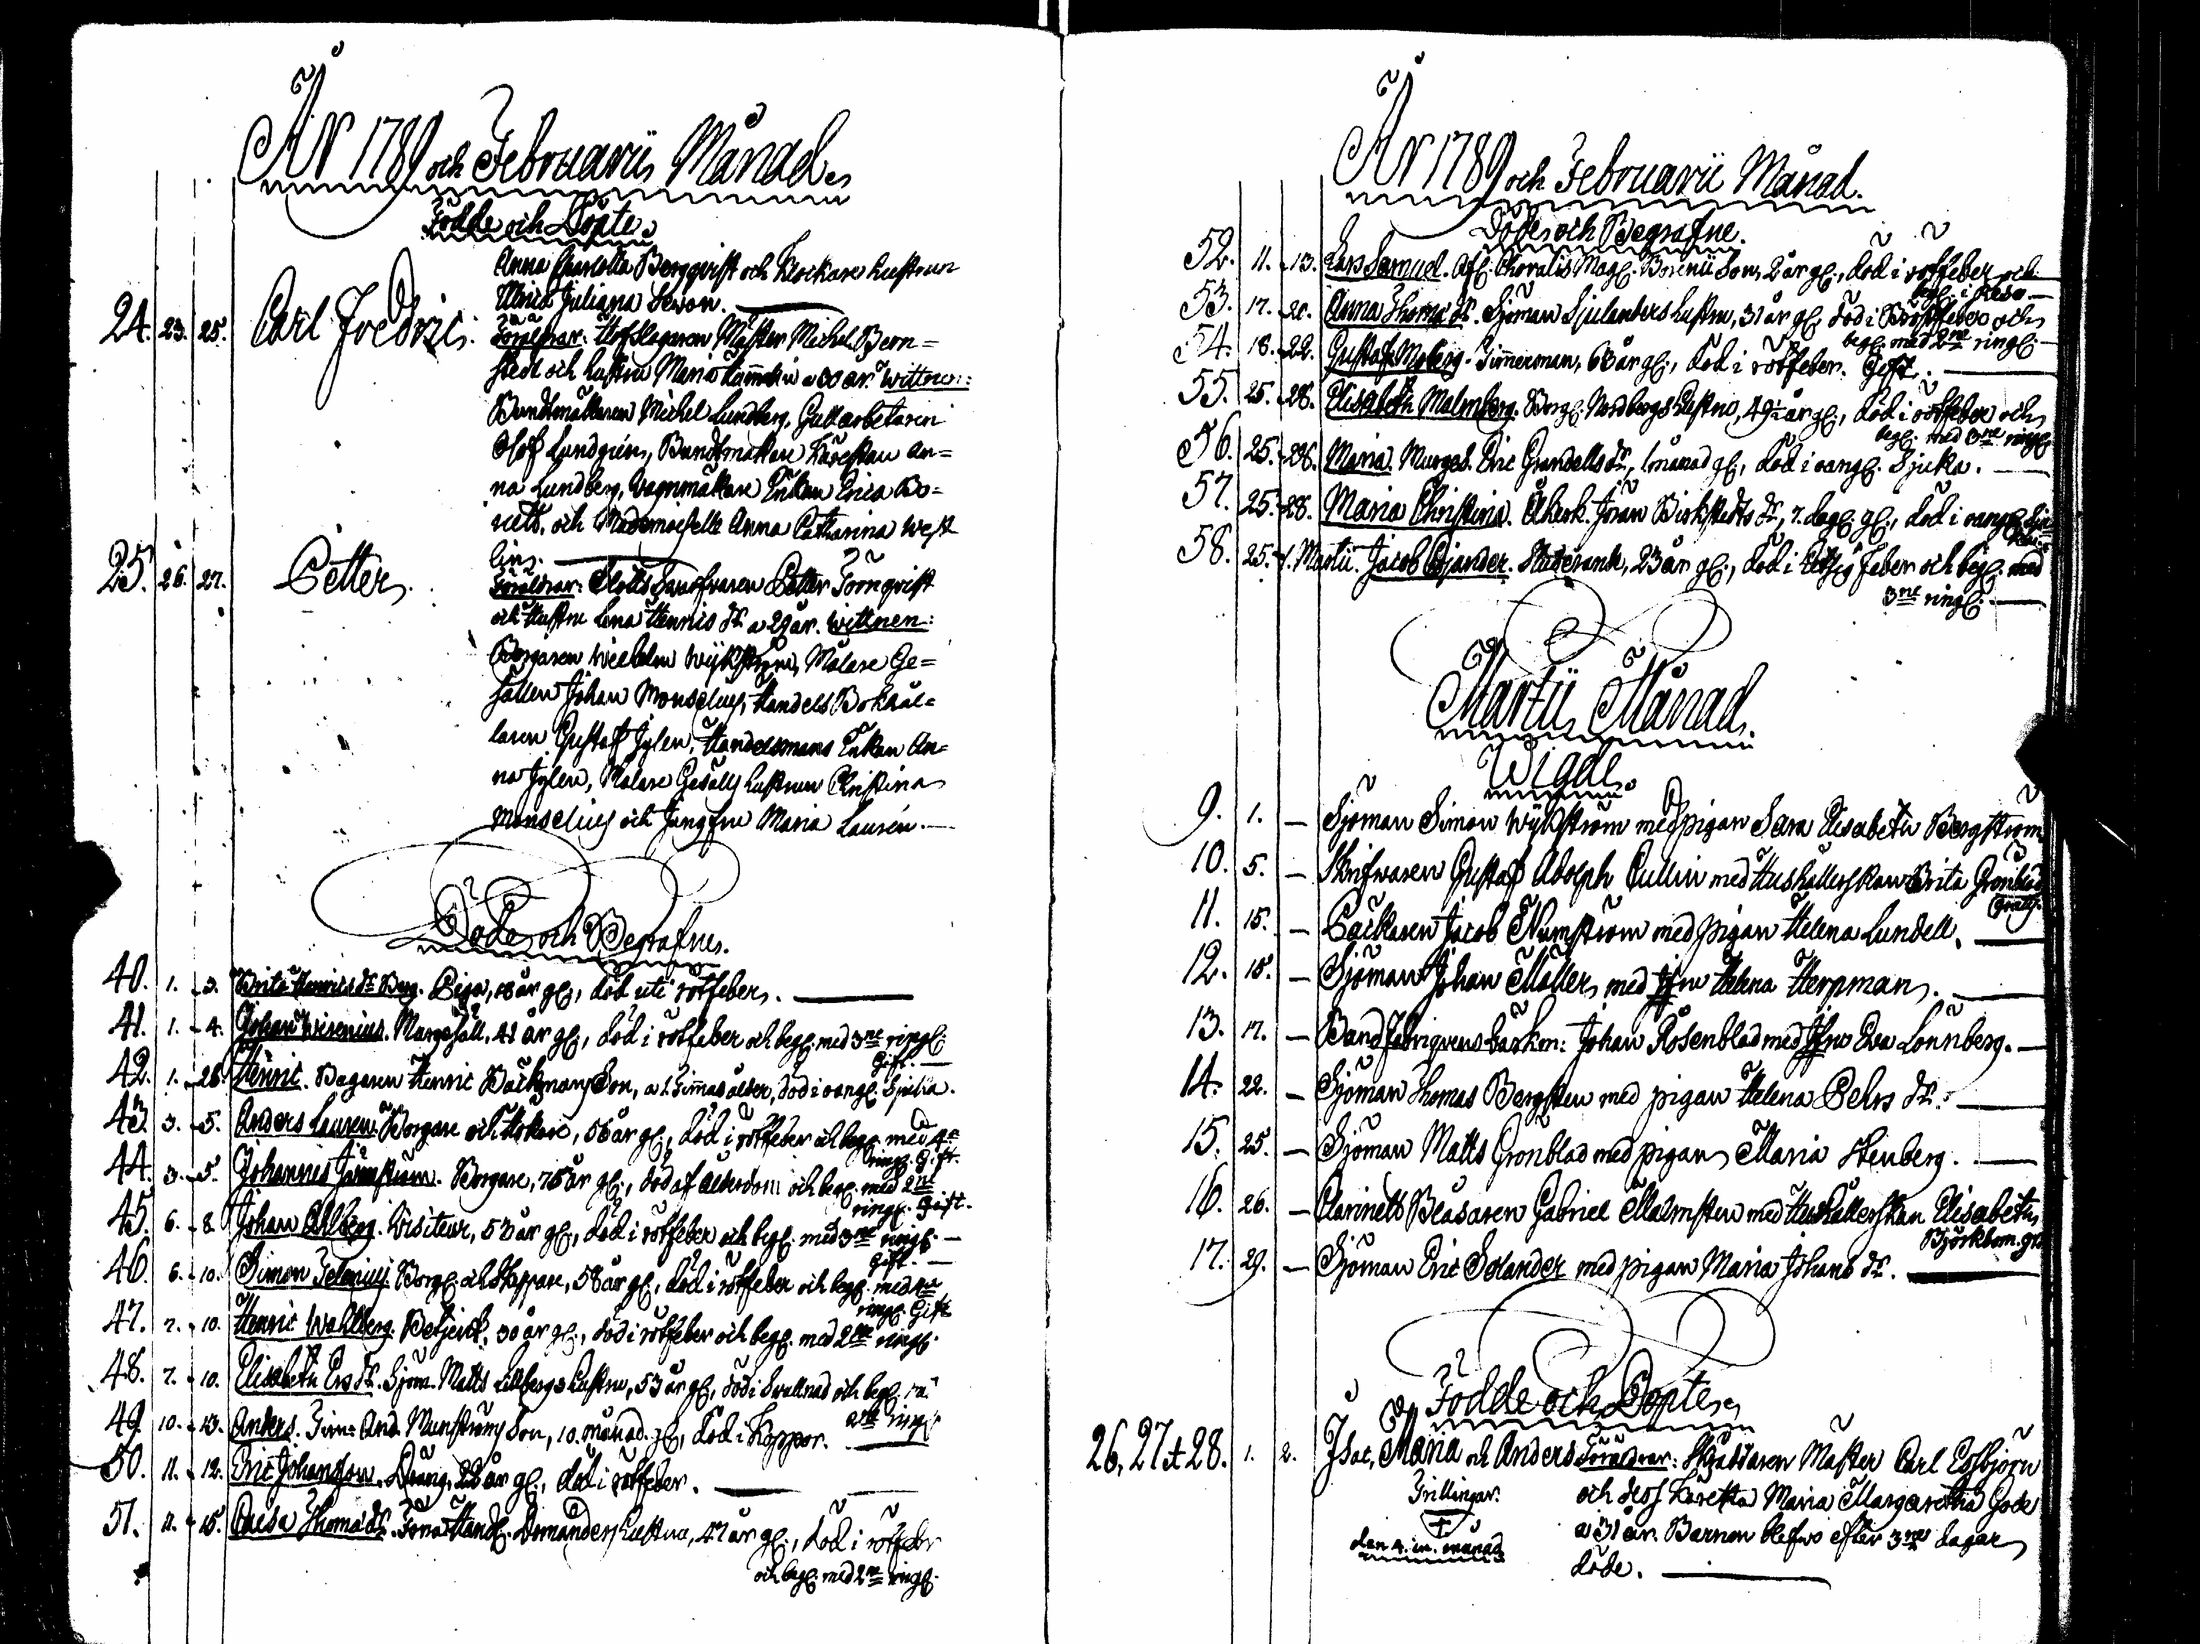 År 1789 och Februarii Månad.
Födde och Döpte.
Anna Charlotta Bergqvist och Klockare hustrun
Ulrica Juliana Sevon.
24. 23. 25. Carl Fredric. Föräldrar: Hofslagaren Mäster Michel Bern=
stedt och hustru Maria a 30 år. Wittnen:
Buntmakaren Michel Lundberg, Gullarbetaren
Olof Lundgrén, Buntmakare Käreskan An=
na Lundberg, Vagnmakare Enkan Brita Bo=
och Mademoiselle Anna Catharina West
lin.
25. 26. 27. Petter. Föräldrar: Slotts Petter Törnqvist
och Hustru Lena Henrics dr a 29 år. Wittnen:
Borgaren Wilhelm Wijkström, Målare Ge=
sällen Johan Monselius, Handels Bokhål=
laren Gustaf Jylen, Handelsmans Enkan An=
na Jylen, Målare Gesälls hustrun Christina
Monselius och Jungfru Maria Laurén.
Döde och Begrafne.
40. 1. 3. Brita Henrics dr Berg. Piga, 18 år gl:, död uti rötfeber.
41. 1. 4. Johan Wirenius. 41 år gl:, död i rötfeber och begr: med 3ne ringl:
Gift.
42. 1. 26. Henric. Bagaren Henric Bäckmans Son, a 1. timas ålder, död i oangl: Sjuka.
43. 3. 5. Anders Lauren. Borgare och Hökare, 56 år gl:, död i rötfeber och begr: med 4ra
ringl: Gift.
44. 3. 5. Johannes Borgare, 75 år gl:, död af ålderdom och begr: med 2ne
ringl: Gift.
45. 6. 8. Johan Ahlberg. Visiteur, 53 år gl:, död i rötfeber och begr: med 3ne ringl:
Gift.
46. 6. 10. Simon Borg: och Skeppare, 58 år gl:, död i rötfeber och begr: med
ringl: Gift
47. 7. 10. Henric Wahlberg. Betjent, 30 år gl:, död i rötfeber och begr: med 2ne ringl:
48. 7. 10. Elisabeth Ers dr. Sjöm: Matts Lillbergs hustru, 53 år gl:, död i Svullnad och begr:
2ne ringl:
49. 10. 13. Anders. Tim: And. Munströms Son, 10. månad. gl:, död i Koppor.
50. 11. 12. Eric Johansson. Dräng, 22 år gl:, död i rötfeber.
51. 11. 15. Caisa Thomæ dr. Handl: Hustru, 47 år gl:, död i rötfeber
och begr: med 2ne ringl:
År 1789 och Februarii Månad.
Döde och Begrafne.
52. 11. 13. Lars Samuel. Choralis Mag: Borenii Son, 2 år gl:, död i rötfeber och
begr: i Reso
53. 17. 20. Anna Thomæ dr. Sjöman Sjulanders hustru, 31 år gl:, död i Bröstfeber och
begr: med 2ne ringl:
54. 18. 22. Gustaf Moberg. Timmerman, 68 år gl:, död i rötfeber. Gift.
55. 25. 28. Elisabeth Malmberg. Borg: Nordbergs Hustru, 49½ år gl:, död i rötfeber och
begr: med 3ne ringl:
56. 25. 28. Maria. Murges. Eric Grandells dr, 1 månad gl:, död i oangl: Sjuka.
57. 25. 28. Maria Christina. Åkerk. Jöran Birkstedts dr, 7. dag: gl:, död i oangl: Sju=
ka.
58. 25. 1. Martii. Jacob Cajander. Studerande, 23 år gl:, död i Hetsig Feber och begr: med
3ne ringl:
Martii Månad.
Wigde.
9. 1. — Sjöman Simon Wijkström med pigan Sara Elisabeth Bergström
10. 5. — Skrifvaren Gustaf Adolph Cullin med Hushållerskan Brita Grönblad
Gratis.
11. 15. — Packaren Jacob Numström med pigan Helena Lundell.
12. 15. — Sjöman Johan Möller med Jfru Helena Herpman.
13. 17. — Bandfabriqueurs Johan Rosenblad med Jfru Eva Lönnberg.
14. 22. — Sjöman Thomas Bergsten med pigan Helena Pehrs dr.
15. 25. — Sjöman Matts Grönblad med pigan Maria Stenberg.
16. 26. — Clarinetts Blåsaren Gabriel Malmsten med Hushållerskan Elisabeth
Björkbom. gr:
17. 29. — Sjöman Eric Solander med pigan Maria Johans dr.
Födde och Döpte.
26, 27 et 28. 1. 2. Isac, Maria och Anders. Föräldrar: Skräddaren Mäster Carl Essbjörn
Trillingar. och dess Käresta Maria Margaretha Gode
† a 31 år. Barnen blefvo efter 3ne dagar
den 4. in. månad döde.